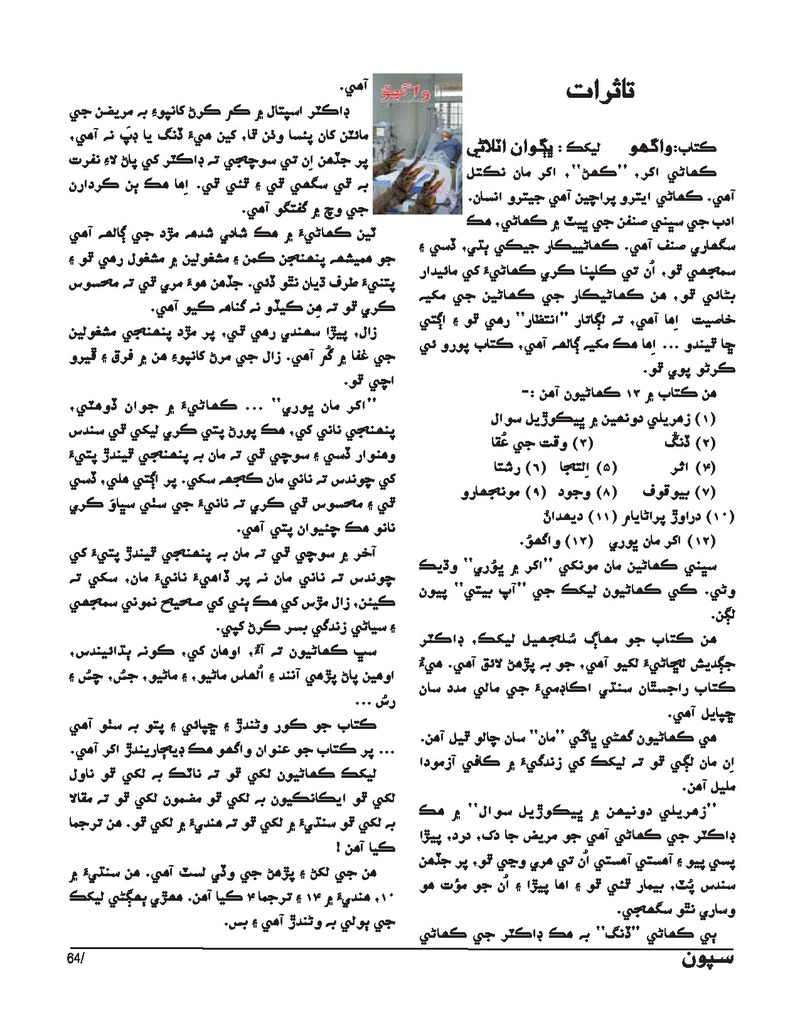 تاثرات
ڪتاب:واگهو ليکڪ : ڀڳوان اٽلاڻي
ڪهاڻي اکر، ”ڪهڻ“، اکر مان نڪتل
آهي. ڪهاڻي ايترو پراچين آهي جيترو انسان.
ادب جي سڀني صنفن جي ڀيٽ ۾ ڪهاڻي، هڪ
سگهاري صنف آهي. ڪهاڻيڪار جيڪي ٻڌي، ڏسي ۽
سمجهي ٿو، اُن تي ڪلپنا ڪري ڪهاڻيءَ کي مائيدار
بڻائي ٿو، هن ڪهاڻيڪار جي ڪهاڻين جي مکيه
خاصيت اِها آهي، ته لڳاتار ”انتظار“ رهي ٿو ۽ اڳتي
ڇا ٿيندو ... اِها هڪ مکيه ڳالهه آهي، ڪتاب پورو ئي
ڪرڻو پوي ٿو.
هن ڪتاب ۾ ۱۳ ڪهاڻيون آهن :-
(۱) زهريلي دونهين ۾ ڀيڪوڙيل سوال
(۲) ڏنگُ (۳) وقت جي عُقا
(۴) اثر (۵) اِلتجا (۶) رشتا
(۷) بيوقوف (۸) وجود (۹) مونجهارو
(۱۰) دراوڙ پراڻايام (۱۱) ڏيهداڻ
(۱۲) اکر مان ڀوري (۱۳) واگهوُ.
سڀني ڪهاڻين مان مونکي ”اکر ۾ ڀوُري“ وڌيڪ
وڻي. ڪي ڪهاڻيون ليکڪ جي ”آپ بيتي“ پيون
لڳن.
هن ڪتاب جو مهاڳ سُلجهيل ليکڪ، ڊاڪٽر
جڳديش لڇاڻيءَ لکيو آهي، جو به پڙهڻ لائق آهي. هيءُ
ڪتاب راجسٿان سنڌي اڪاڊميءَ جي مالي مدد سان
ڇپايل آهي.
هي ڪهاڻيون گهڻي ڀاڱي ”مان“ سان چالو ٿيل آهن.
اِن مان لڳي ٿو ته ليکڪ کي زندگيءَ ۾ ڪافي آزمودا
مليل آهن.
”زهريلي دونهين ۾ ڀيڪوڙيل سوال“ ۾ هڪ
ڊاڪٽر جي ڪهاڻي آهي جو مريض جا دک، درد، پيڙا
پسي پيو ۽ آهستي آهستي اُن تي هري وڃي ٿو، پر جڏهن
سندس پُٽ، بيمار ٿئي ٿو ۽ اها پيڙا ۽ اُن جو مؤت هو
وساري نٿو سگهجي.
ٻي ڪهاڻي ”ڏنگ“ به هڪ ڊاڪٽر جي ڪهاڻي
واگهوُ
آهي.
ڊاڪٽر اسپتال ۾ ڪم ڪرڻ کانپوءِ به مريضن جي
مائٽن کان پئسا وٺن ٿا، کين هيءَ ڏنگ يا ڊپ نه آهي،
پر جڏهن اِن تي سوچجي ته ڊاڪٽر کي پاڻ لاءِ نفرت
به ٿي سگهي ٿي ۽ ٿئي ٿي. اِها هڪ ٻن ڪردارن
جي وچ ۾ گفتگو آهي.
ٽين ڪهاڻيءَ ۾ هڪ شادي شده مڙد جي ڳالهه آهي
جو هميشه پنهنجن ڪمن ۽ مشغولين ۾ مشغول رهي ٿو ۽
پتنيءَ طرف ڌيان نٿو ڏئي. جڏهن هوءَ مري ٿي ته محسوس
ڪري ٿو ته هن ڪيڏو نه گناهه ڪيو آهي.
زال، پيڙا سهندي رهي ٿي، پر مڙد پنهنجي مشغولين
جي غفا ۾ گُم آهي. زال جي مرڻ کانپوءِ هن ۾ فرق ۽ ڦيرو
اچي ٿو.
”اکر مان ڀوري“ ... ڪهاڻيءَ ۾ جوان ڏوهٽي،
پنهنجي ناني کي، هڪ پورڻ پتي ڪري ليکي ٿي سندس
وهنوار ڏسي ۽ سوچي ٿي ته مان به پنهنجي ٿيندڙ پتيءَ
کي چوندس ته ناني مان ڪجهه سکي. پر اڳتي هلي، ڏسي
ٿي ۽ محسوس ٿي ڪري ته نانيءَ جي سٺي سڀاوَ ڪري
نانو هڪ چئيوان پتي آهي.
آخر ۾ سوچي ٿي ته مان به پنهنجي ٿيندڙ پتيءَ کي
چوندس ته ناني مان نه پر ڏاهيءَ نانيءَ مان، سکي ته
ڪيئن، زال مڙس کي هڪ ٻئي کي صحيح نموني سمجهي
۽ سياڻي زندگي بسر ڪرڻ کپي.
سڀ ڪهاڻيون ته آءٌ، اوهان کي، ڪونه ٻڌائيندس،
اوهين پاڻ پڙهي آنند ۽ اُلهاس ماڻيو، ۽ ماڻيو، جسُ، چسُ ۽
رسُ ...
ڪتاب جو ڪور وڻندڙ ۽ ڇپائي ۽ پٺو به سٺو آهي
... پر ڪتاب جو عنوان واگهو هڪ ڊيڄاريندڙ اکر آهي.
ليکڪ ڪهاڻيون لکي ٿو ته ناٽڪ به لکي ٿو ناول
لکي ٿو ايڪانڪيون به لکي ٿو مضمون لکي ٿو ته مقالا
به لکي ٿو سنڌيءَ ۾ لکي ٿو ته هنديءَ ۾ لکي ٿو. هن ترجما
ڪيا آهن !
هن جي لکڻ ۽ پڙهڻ جي وڏي لسٽ آهي. هن سنڌيءَ ۾
۱۰، هنديءَ ۾ ۱۴ ۽ ترجما ۴ ڪيا آهن. هھڙي ٻهڳڻي ليکڪ
جي ٻولي به وڻندڙ آهي ۽ بس.
سپون
64/